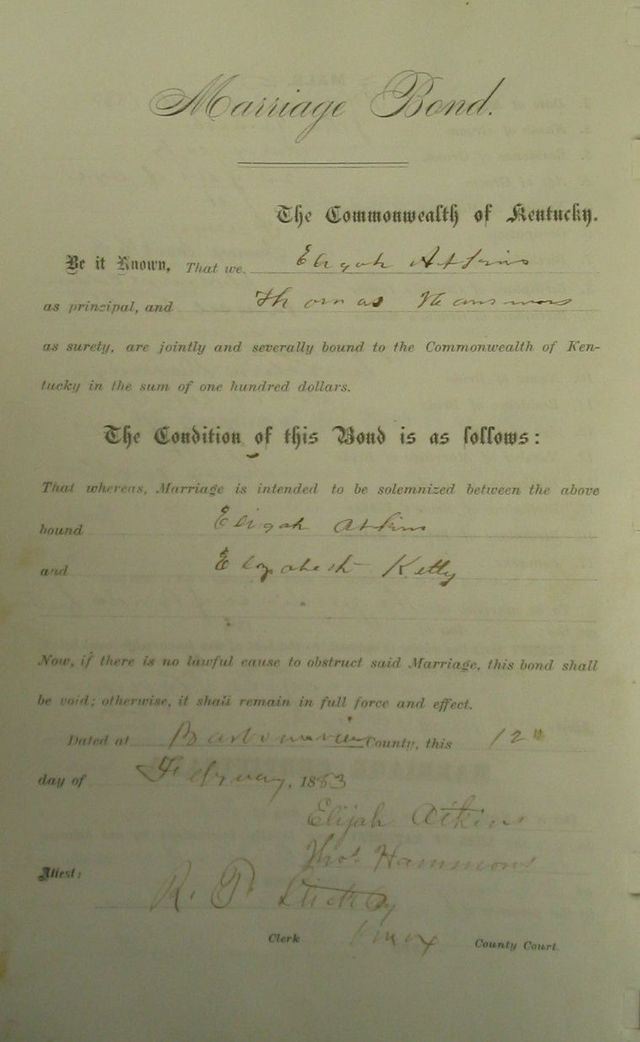 Marriage Bond.
The Commonwealth of Kentucky.
Be it Known, That we Elijah Atkins
as principal, and Thomas Hammons
as surety, are jointly and severally bound to the Commonwealth of Ken-
tucky in the sum of one hundred dollars.
The Condition of this Bond is as follows:
That whereas, Marriage is intended to be solemnized between the above
bound Elijah Atkins
and Elizabeth Kelly
Now, if there is no lawful cause to obstruct said Marriage, this bond shall
be void; otherwise, it shall remain in full force and effect.
Dated at County, this 12"
day of February, 1883
Elijah Atkins
Thos Hammons
Attest: R. P.
Clerk Knox County Court.